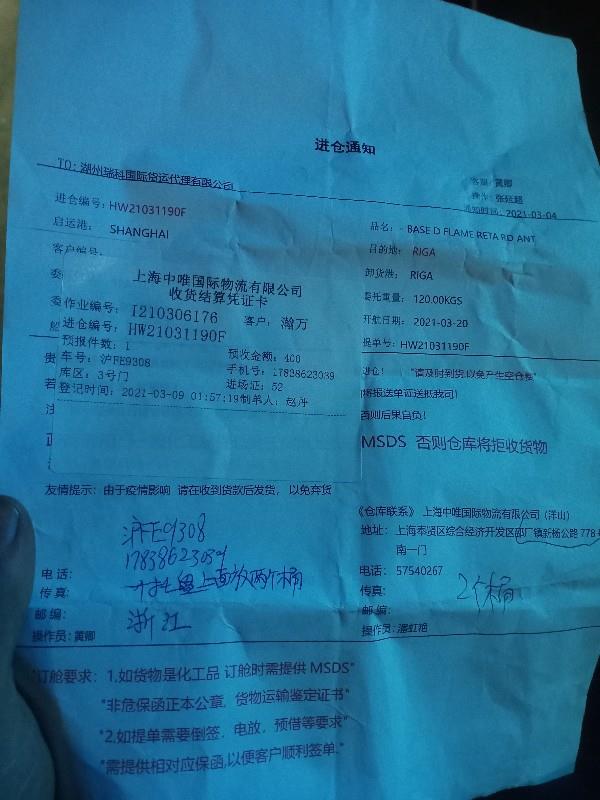 进仓通知
TO: 湖州瑞科国际货运代理有限公司
客服: 黄卿
操作: 张廷超
通知时间: 2021-03-04
进仓编号: HW21031190F
品名: - BASE D FLAME RETA RD ANT
启运港: SHANGHAI
目的地: RIGA
客户编号:
卸货港: RIGA
委
上海中唯国际物流有限公司
收货结算凭证卡
委托重量: 120.00KGS
委作业编号: I210306176 客户: 瀚万
开航日期: 2021-03-20
进仓编号: HW21031190F
提单号: HW21031190F
预报件数: 1
预收金额: 400
贵
车号: 沪FE9308
手机号: 17838623039
进仓! "请及时到货,以免产生空仓费"
库区: 3号门
进场证: 52
将报送单证送抵我司)
若
登记时间: 2021-03-09 01:57:19 制单人: 赵丹
否则后果自负!
MSDS 否则仓库将拒收货物
友情提示: 由于疫情影响 请在收到货款后发货, 以免弃货
沪FE9308
17838623039
两个桶
浙江
电话:
传真:
邮编:
操作员: 黄卿
《仓库联系》 上海中唯国际物流有限公司 (洋山)
地址: 上海奉贤区综合经济开发区邵厂镇新杨公路 778
南一门
电话: 57540267
传真:
2个桶
邮编:
操作员: 潘虹艳
"订舱要求: 1,如货物是化工品 订舱时需提供 MSDS"
"非危保函正本公章, 货物运输鉴定证书"
"2,如提单需要倒签, 电放, 预借等要求"
"需提供相对应保函,以便客户顺利签单."